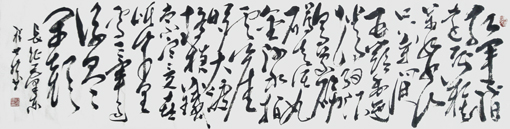 红军不怕
远征难
万水千山
只等闲
五岭逶迤
腾细浪
乌蒙磅
礴走泥丸
金沙水拍
云崖
暖大渡
桥横铁
索寒更喜
岷山千里
雪三军过
后尽
开颜
长征毛泽东